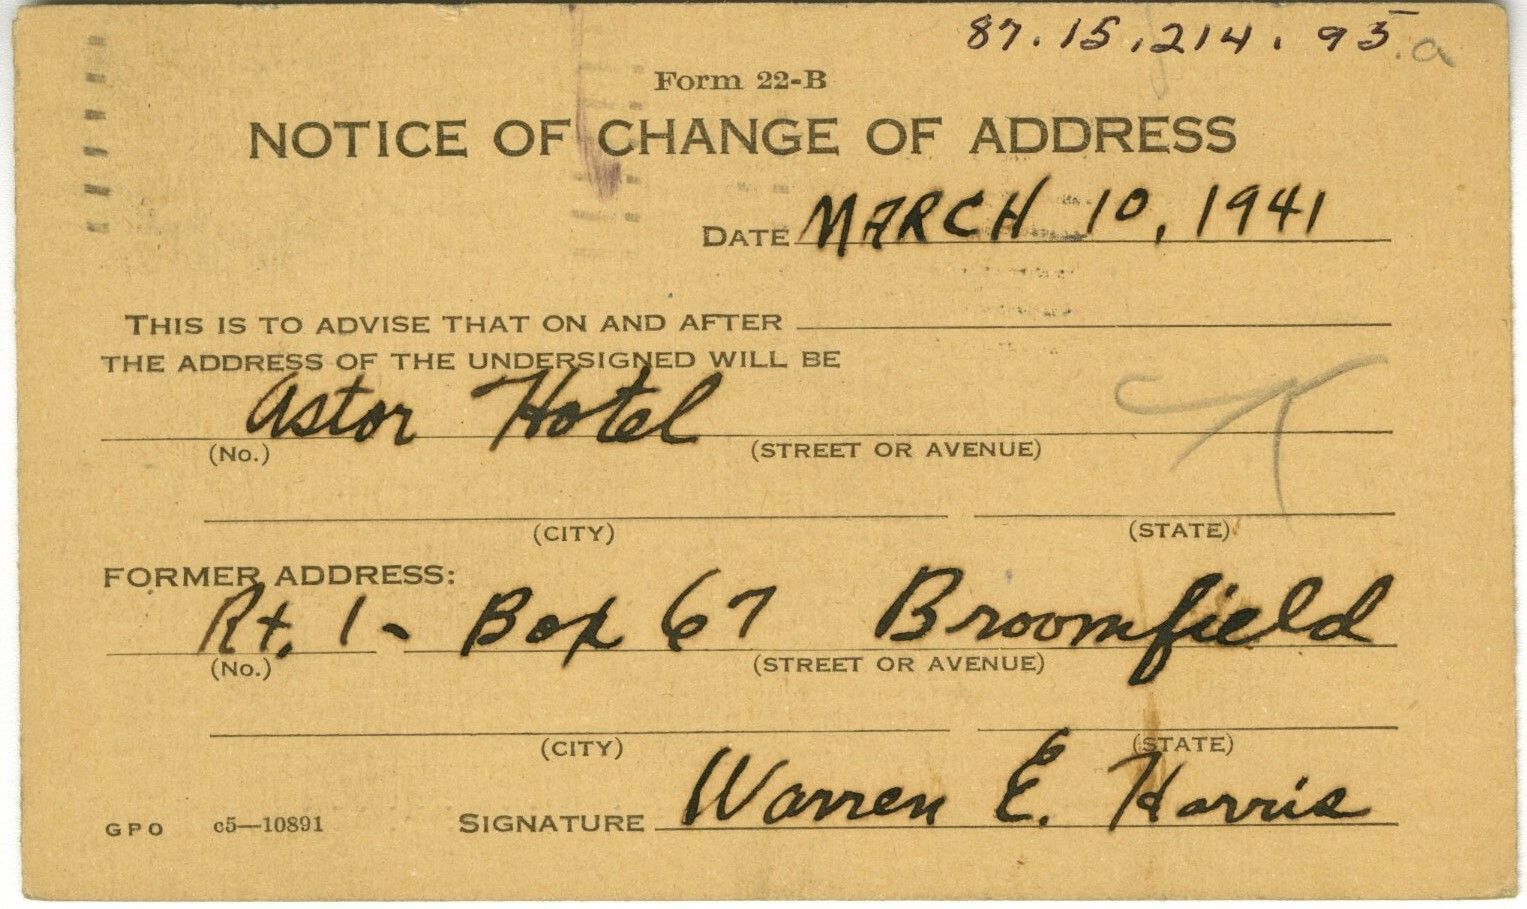 87.15.214.95.a
Form 22-B
NOTICE OF CHANGE OF ADDRESS
DATE MARCH 10, 1941
THIS IS TO ADVISE THAT ON AND AFTER
THE ADDRESS OF THE UNDERSIGNED WILL BE
Astor Hotel
(No.) (STREET OR AVENUE)
(CITY) (STATE)
FORMER ADDRESS:
Rt. 1 - Box 67 Broomfield
(No.) (STREET OR AVENUE)
(CITY) (STATE)
GPO c5—10891 SIGNATURE Warren E. Harris